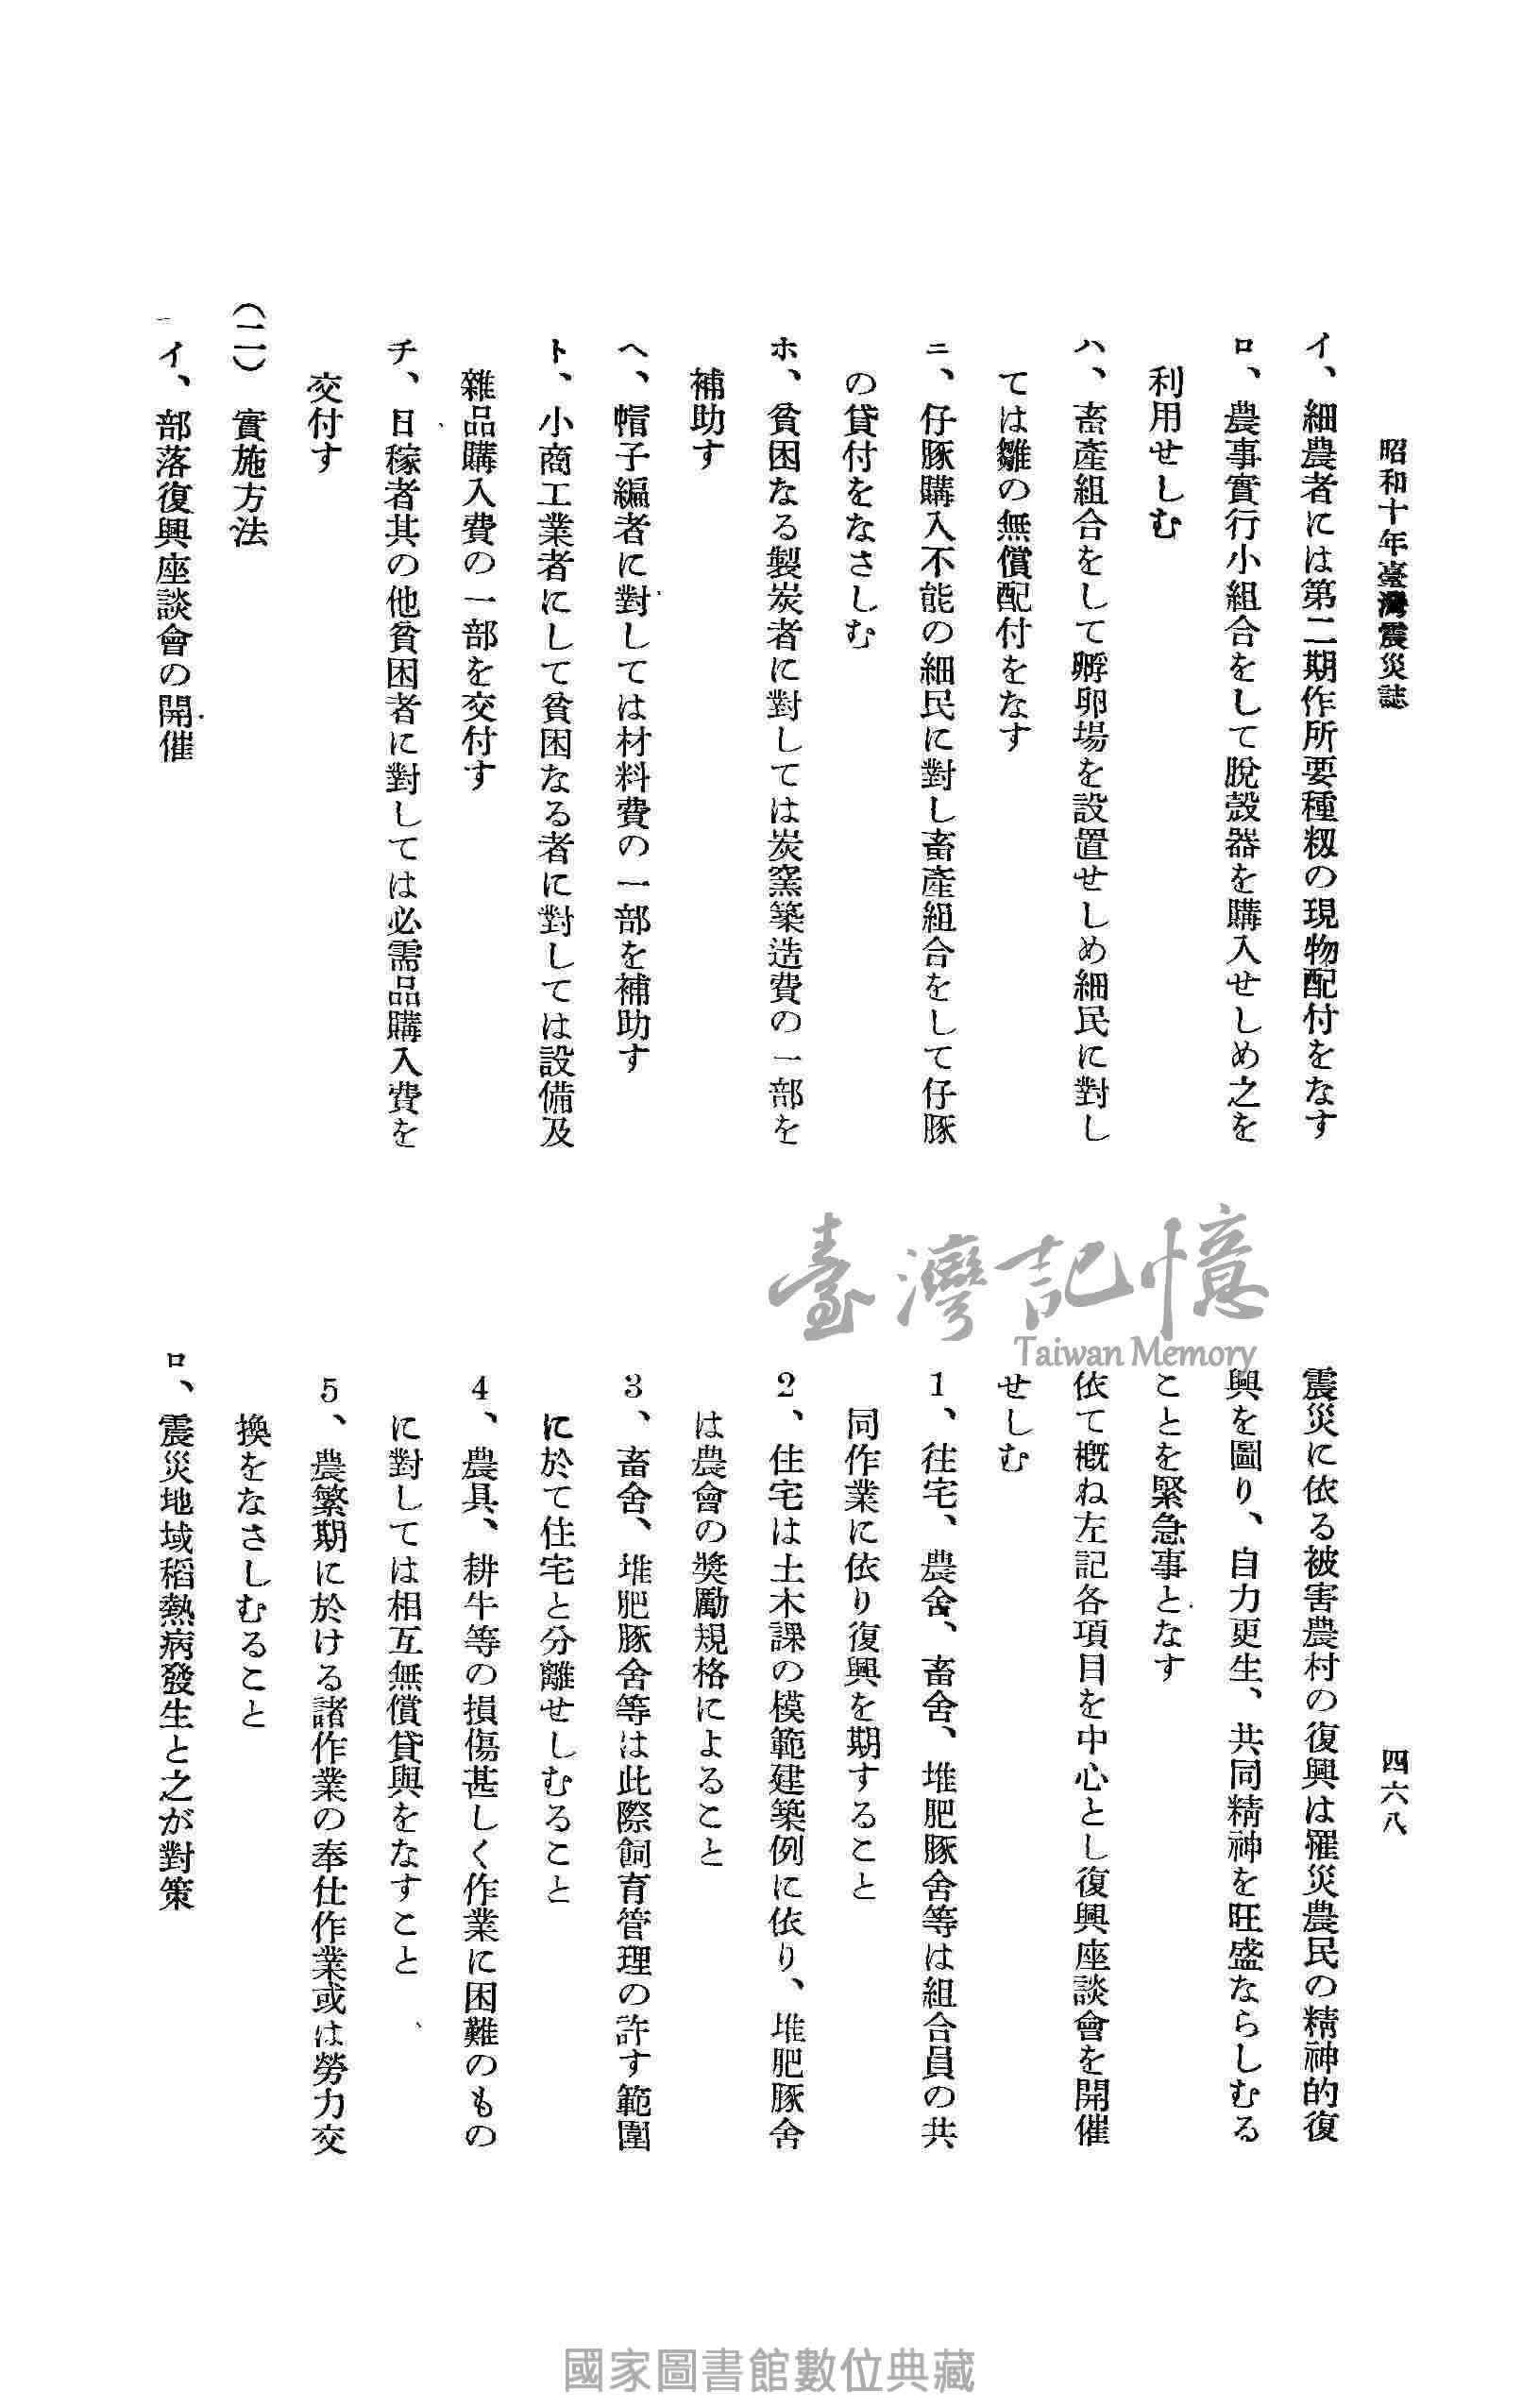 昭和十年臺灣震災誌
四六八
イ、細農者には第二期作所要種籾の現物配付をなす
ロ、農事實行小組合をして脫殼器を購入せしめ之を
利用せしむ
ハ、畜產組合をして孵卵場を設置せしめ細民に對し
ては雛の無償配付をなす
ニ、仔豚購入不能の細民に對し畜產組合をして仔豚
の貸付をなさしむ
ホ、貧困なる製炭者に對しては炭窯築造費の一部を
補助す
ヘ、帽子編者に對しては材料費の一部を補助す
ト、小商工業者にして貧困なる者に對しては設備及
雜品購入費の一部を交付す
チ、日稼者其の他貧困者に對しては必需品購入費を
交付す
(二) 實施方法
イ、部落復興座談會の開催
震災に依る被害農村の復興は罹災農民の精神的復
興を圖り、自力更生、共同精神を旺盛ならしむる
ことを緊急事となす
依て槪ね左記各項目を中心とし復興座談會を開催
せしむ
1、住宅、農舍、畜舍、堆肥豚舍等は組合員の共
同作業に依り復興を期すること
2、住宅は土木課の模範建築例に依り、堆肥豚舍
は農會の奬勵規格によること
3、畜舍、堆肥豚舍等は此際飼育管理の許す範圍
に於て住宅と分離せしむること
4、農具、耕牛等の損傷甚しく作業に困難のもの
に對しては相互無償貸與をなすこと
5、農繁期に於ける諸作業の奉仕作業或は勞力交
換をなさしむること
ロ、震災地域稻熱病發生と之が對策
臺灣記憶
Taiwan Memory
國家圖書館數位典藏